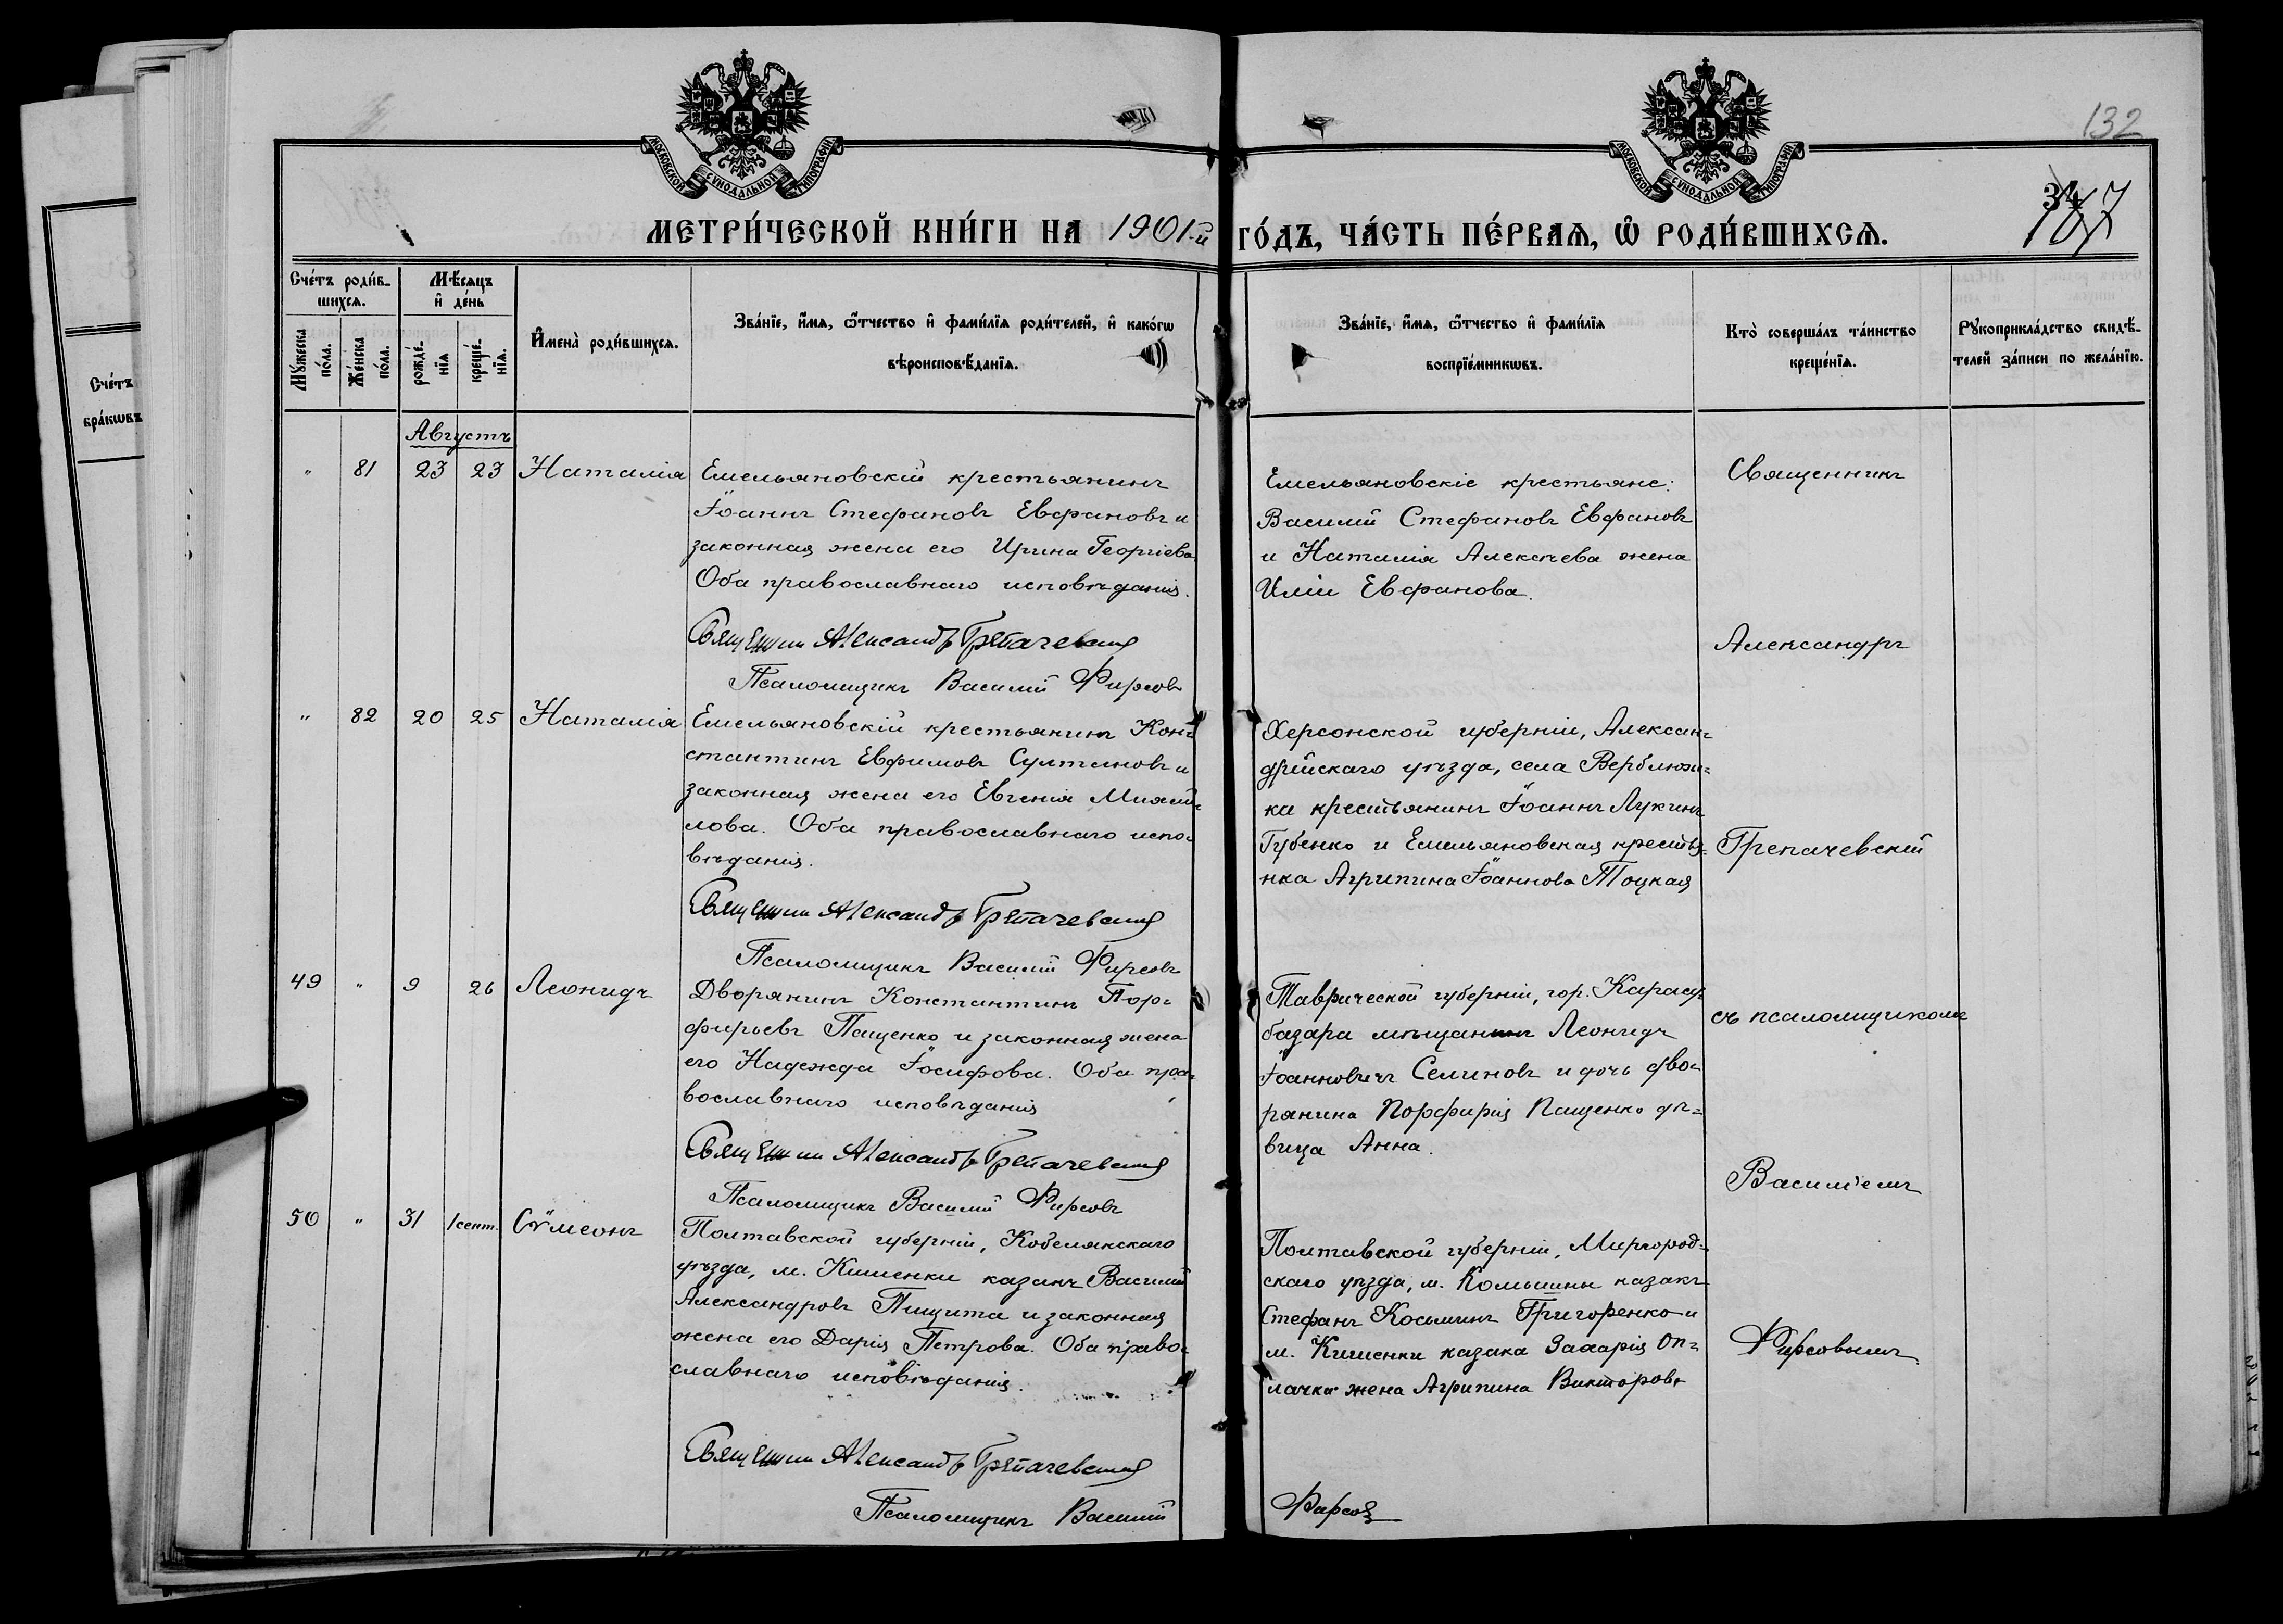 132
МОСКОВСКОЙ СѴНОДАЛЬНОЙ ТИПОГРАФІИ
МОСКОВСКОЙ СѴНОДАЛЬНОЙ ТИПОГРАФІИ
МЕТРИ́ЧЕСКОЙ КНИ́ГИ НА 1901-й ГО́ДЪ, ЧА́СТЬ ПЕ́РВАЯ, Ѡ РОДИ́ВШИХСЯ.
Сче́тъ
бра́кѡвъ
Сче́тъ роди́в-
шихся.
Му́жеска
по́ла.
Же́нска
по́ла.
Мѣ́сяцъ
и де́нь
рожде́-
нїя
креще́-
нїя.
Имена̀ роди́вшихся.
Зва́нїе, и́мя, ѻ́тчество и фами́лїя роди́телей, и како́гѡ
вѣроисповѣ́данїя.
Зва́нїе, и́мя, ѻ́тчество и фами́лїя
воспрїе́мникѡвъ.
Кто̀ соверша́лъ та́инство
креще́нїя.
Рукоприкла́дство свидѣ́-
телей за́писи по жела́нїю.
Августъ
" 81 23 23 Наталія
Емельяновскій крестьянинъ
Іоаннъ Стефановъ Евфановъ и
законная жена его Ирина Георгіева
Оба православнаго исповѣданія.
Священникъ Александръ Грепачевскій
Псаломщикъ Василій Фирсовъ
Емельяновскіе крестьяне:
Василій Стефановъ Евфановъ
и Наталія Алексѣева жена
Иліи Евфанова.
Священникъ
Александръ
Грепачевскій
съ псаломщикомъ
Василіемъ
Фирсовымъ
" 82 20 25 Наталія
Емельяновскій крестьянинъ Кон-
стантинъ Евфимовъ Султановъ и
законная жена его Евгенія Михаи-
лова. Оба православнаго испо-
вѣданія.
Священникъ Александръ Грепачевскій
Псаломщикъ Василій Фирсовъ
Херсонской губерніи, Алексан-
дрійскаго уѣзда, села Верблюж-
ка крестьянинъ Іоаннъ Лукинъ
Губенко и Емельяновская крестья-
нка Агрипина Іоаннова Тоцкая
49 " 9 26 Леонидъ
Дворянинъ Константинъ Пор-
фирьевъ Пащенко и законная жена
его Надежда Іосифова. Оба пра-
вославнаго исповѣданія
Священникъ Александръ Грепачевскій
Псаломщикъ Василій Фирсовъ
Таврической губерніи, гор. Карасу-
базара мѣщанинъ Леонидъ
Іоанновичъ Селиновъ и дочь дво-
рянина Порфирія Пащенко дѣ-
вица Анна.
50 " 31 1 сент. Сѵмеонъ
Полтавской губерніи, Кобелякскаго
уѣзда, м. Кишенки казакъ Василій
Александровъ Пищита и законная
жена его Дарія Петрова. Оба право-
славнаго исповѣданія.
Священникъ Александръ Грепачевскій
Псаломщикъ Василій Фирсовъ
Полтавской губерніи, Миргород-
скаго уѣзда, м. Комышны казакъ
Стефанъ Косьминъ Григоренко и
м. Кишенки казака Захарія Оп-
лачка жена Агрипина Викторова